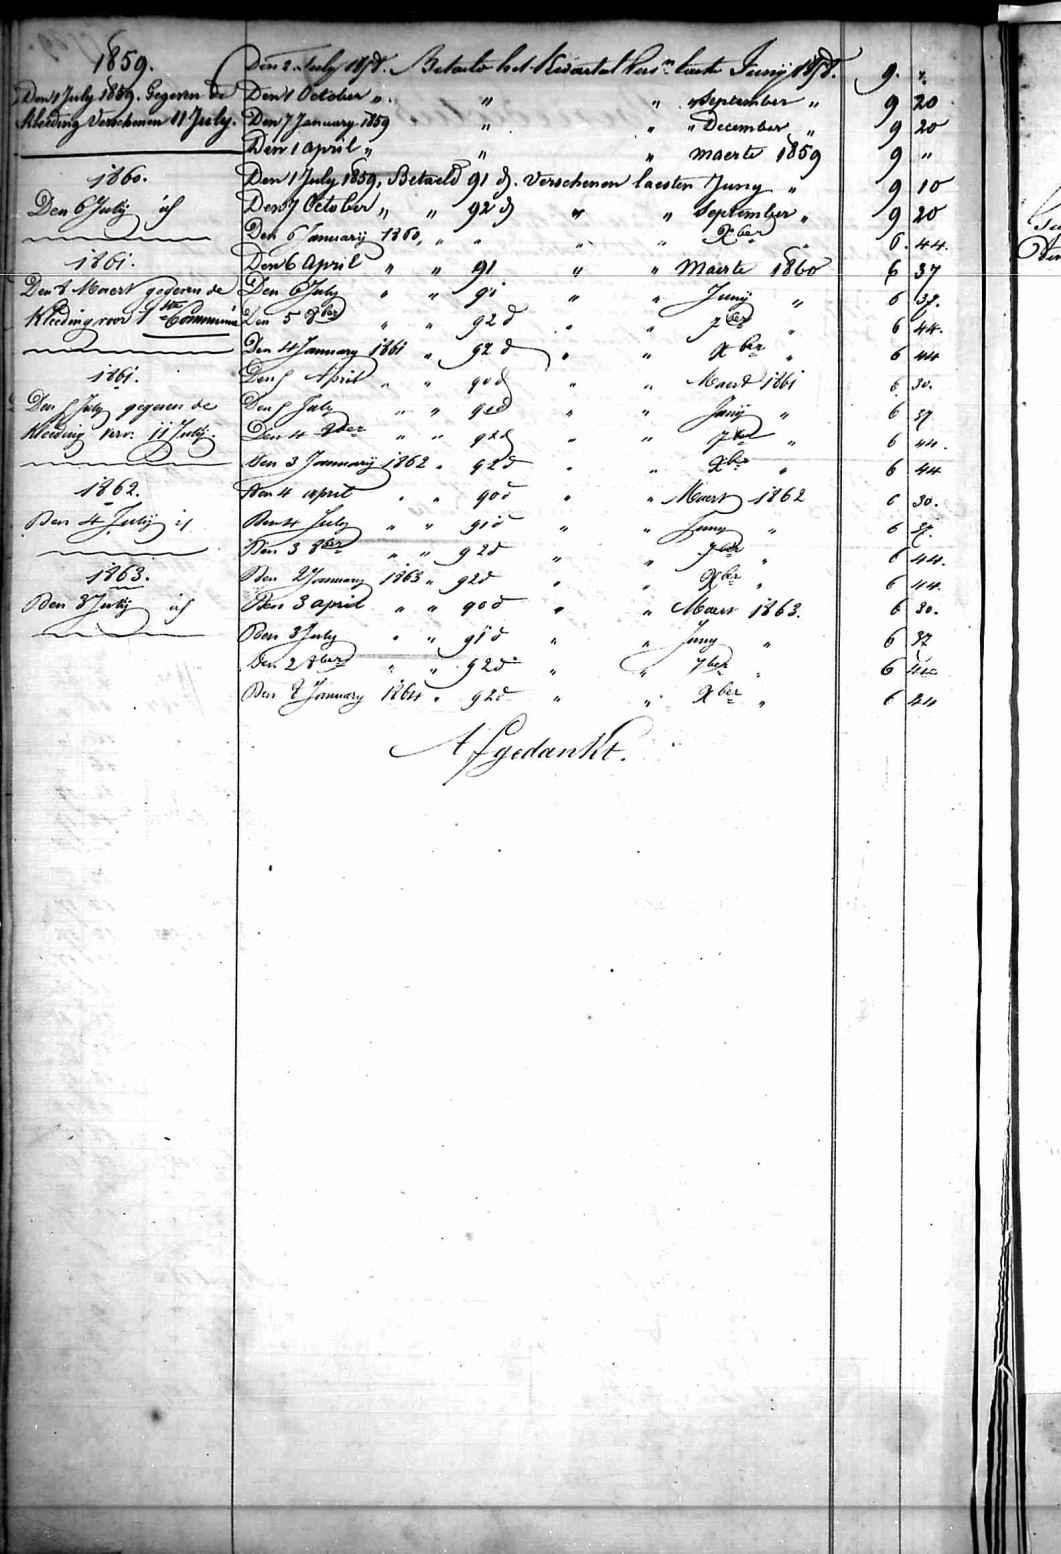 1859.
Den 1 July 1859. Gegeven de
kleeding Verschenen 11 July.
1860.
Den 6 July id
1861.
Den 6 Maert gegeven de
Kleeding voor 1ste Communie
1861.
Den 5 July gegeven de
Kleeding verv. 11 July.
1862.
Den 4 Julij id
1863.
Den 3 Julij id
Den 2 July 1858. Betaeld het Kwartal Vers.n laeste Junij 1858. 9. "
Den 1 October " " " " September " 9 20
Den 7 January 1859 " " " December " 9 20
Den 1 april " " " maerte 1859 9 "
Den 1 July 1859, Betaeld 91 d. Verschenen laesten Juny " 9 10
Den 7 October " " 92 d " " September " 9 20
Den 6 Januarij 1860, " " " " Xber " 6. 44.
Den 6 April " " 91 " " Maerte 1860 6 37
Den 6 July " " 91 " " Junij " 6 37.
Den 5 8ber " " 92 d " " 7ber " 6 44.
Den 4 January 1861 " 92 d " " Xber " 6 44
Den 5 April " " 90 d " " Maert 1861 6 30.
Den 5 July " " 91 d " " Junij " 6 37.
Den 4 8ber " " 92 d " " 7ber " 6 44.
Den 3 Januarij 1862 " 92 d " " Xber " 6 44
Den 4 april " " 90 d " " Maert 1862 6 30.
Den 4 July " " 91 d " " Juny " 6 37.
Den 3 8ber " " 92 d " " 7ber " 6 44.
Den 2 January 1863 " 92 d " " Xber " 6 44.
Den 3 april " " 90 d " " Maert 1863. 6 30.
Den 3 July " " 91 d " " Juny " 6 37
Den 2 8ber " " 92 d " " 7ber " 6 44
Den 2 January 1864 " 92 d " " Xber " 6 44
Afgedankt.